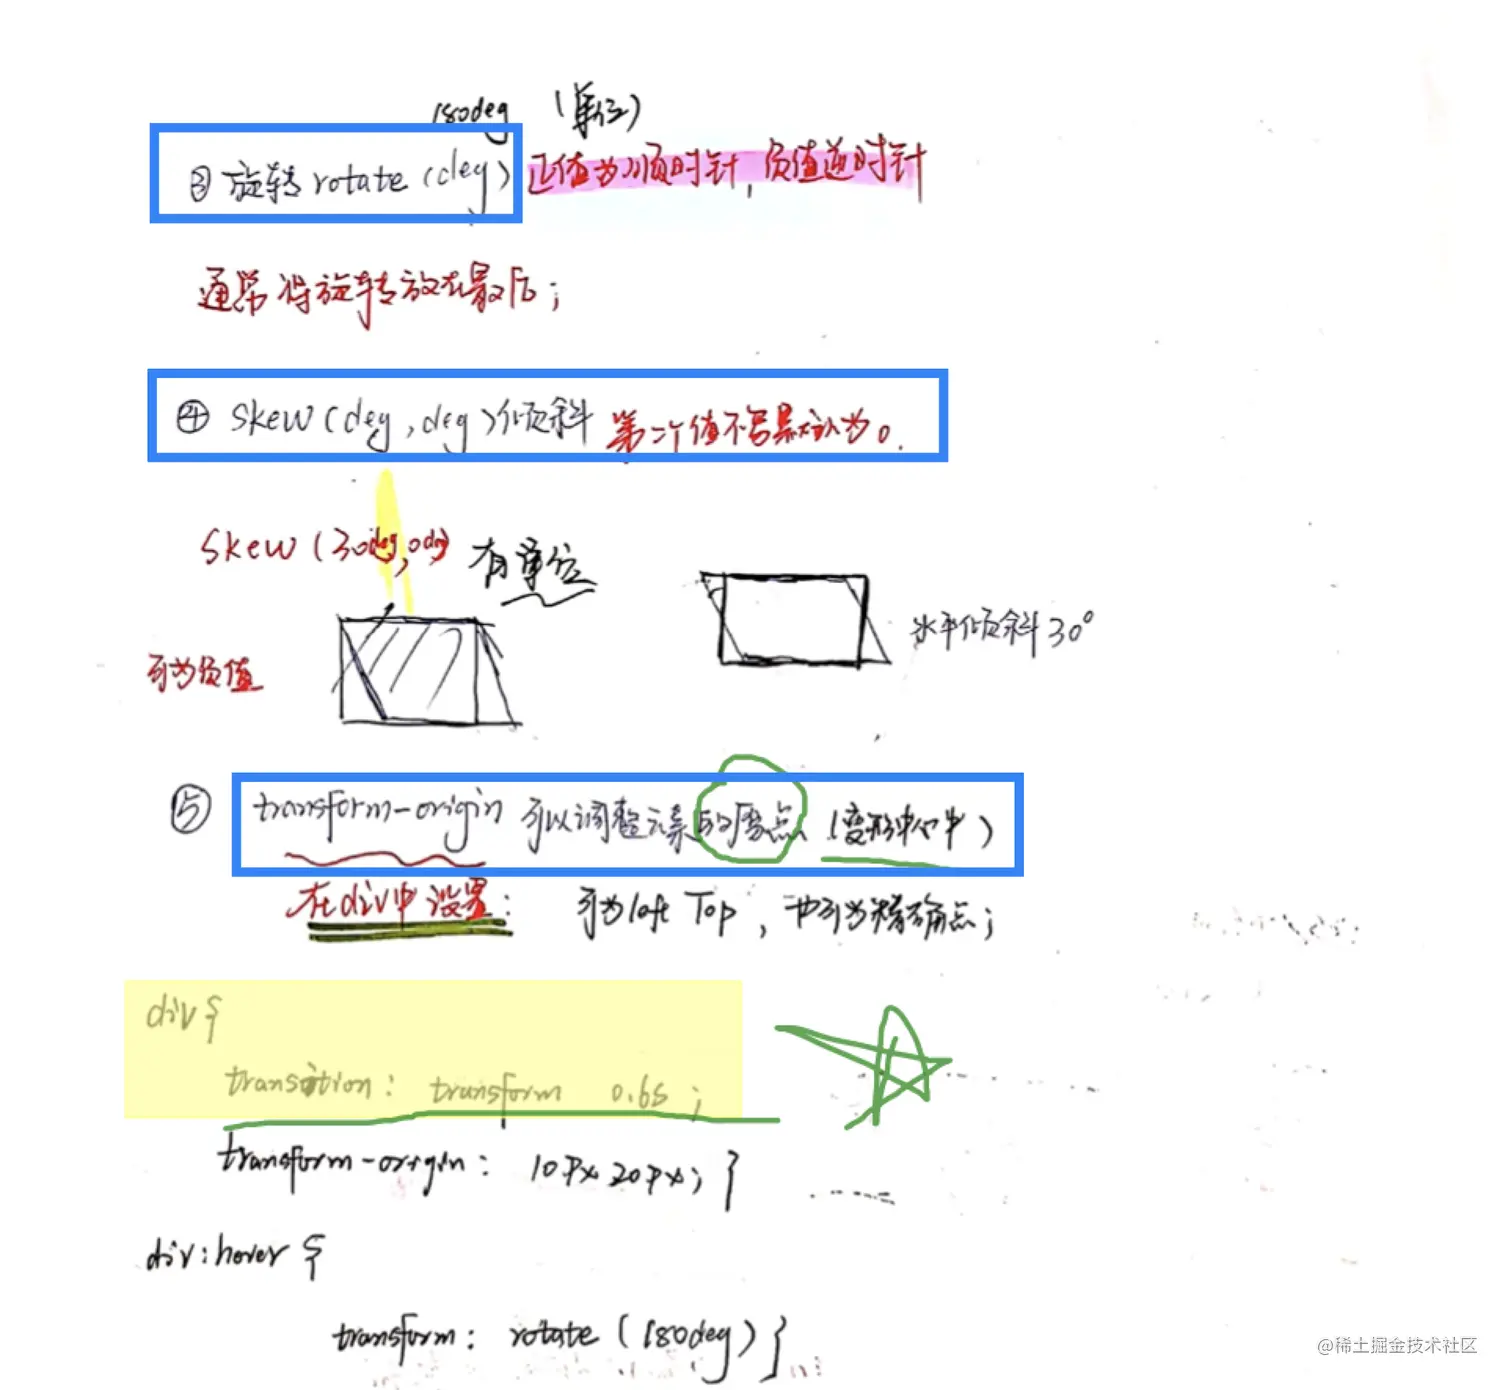 180deg (单位)
③旋转rotate(deg) 正值为顺时针,负值逆时针
通常将旋转放在最后;
④ skew(deg,deg)倾斜 第二个值不写默认为0.
skew(30deg,0deg) 有单位
水平倾斜30°
可为负值
⑤ transform-origin 可以调整元素的原点(变形中心中)
在div中设置: 可为left Top,也可为精确点;
div{
transition: transform 0.6s;
transform-origin: 10px 20px;}
div:hover{
transform: rotate(180deg)}
@稀土掘金技术社区